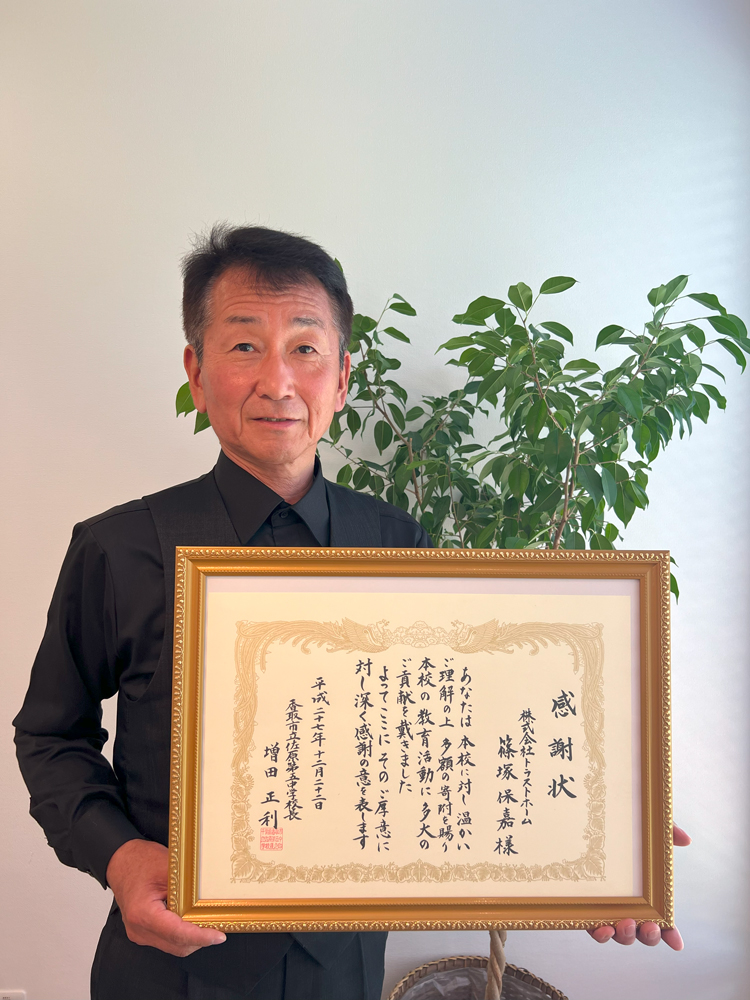 感謝状
株式会社トラストホーム
篠塚保嘉様
あなたは 本校に対し 温かい
ご理解の上 多額の寄附を賜り
本校の教育活動に多大の
ご貢献を戴きました
よってここに そのご厚意に
対し深く感謝の意を表します
平成二十七年十二月二十二日
香取市立佐原第五中学校長
増田正利